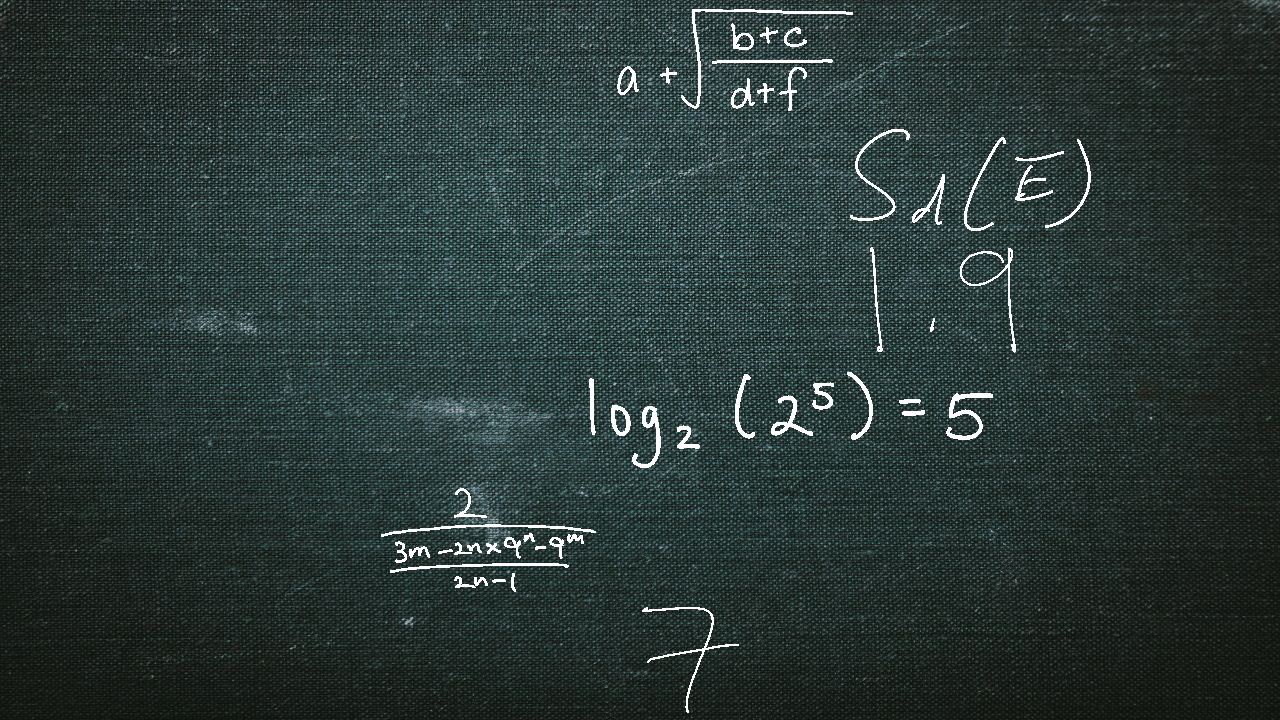 a + √((b+c)/(d+f))
Sd(E)
1.9
log₂ (2⁵) = 5
2/((3m-2n×9ⁿ-9ᵐ)/(2n-1))
7